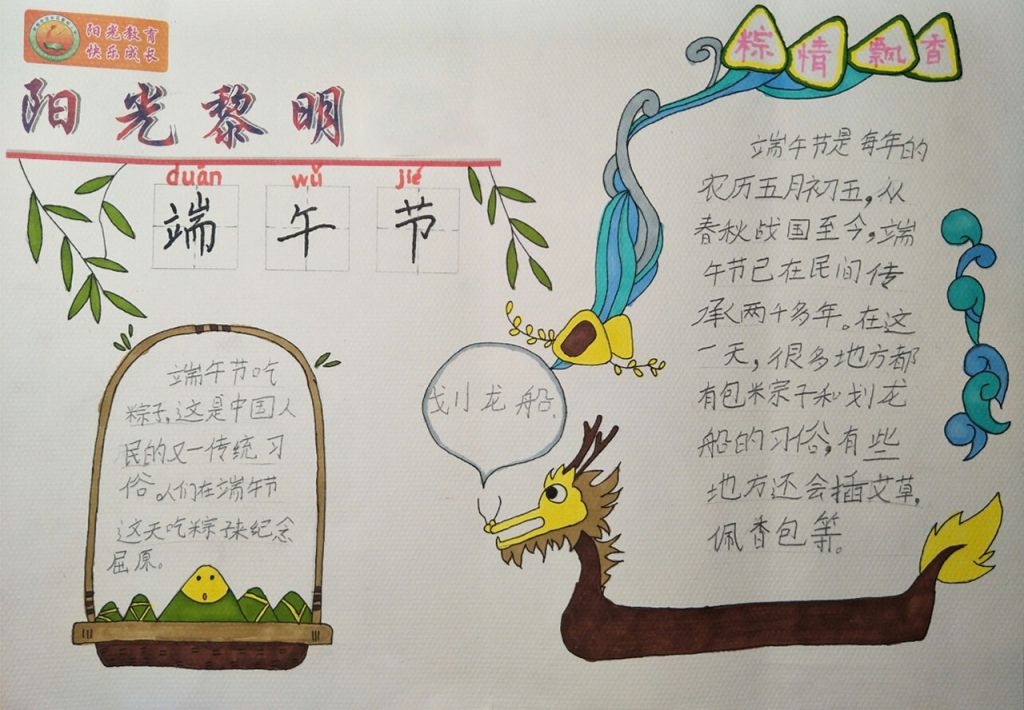 阳光教育
快乐成长
阳光黎明
duān wǔ jié
端午节
端午节吃
粽子,这是中国人
民的又一传统习
俗。人们在端午节
这天吃粽子来纪念
屈原。
划龙船.
粽情飘香
端午节是每年的
农历五月初五,从
春秋战国至今,端
午节已在民间传
承两千多年。在这
一天,很多地方都
有包粽子和划龙
船的习俗,有些
地方还会插艾草,
佩香包等。